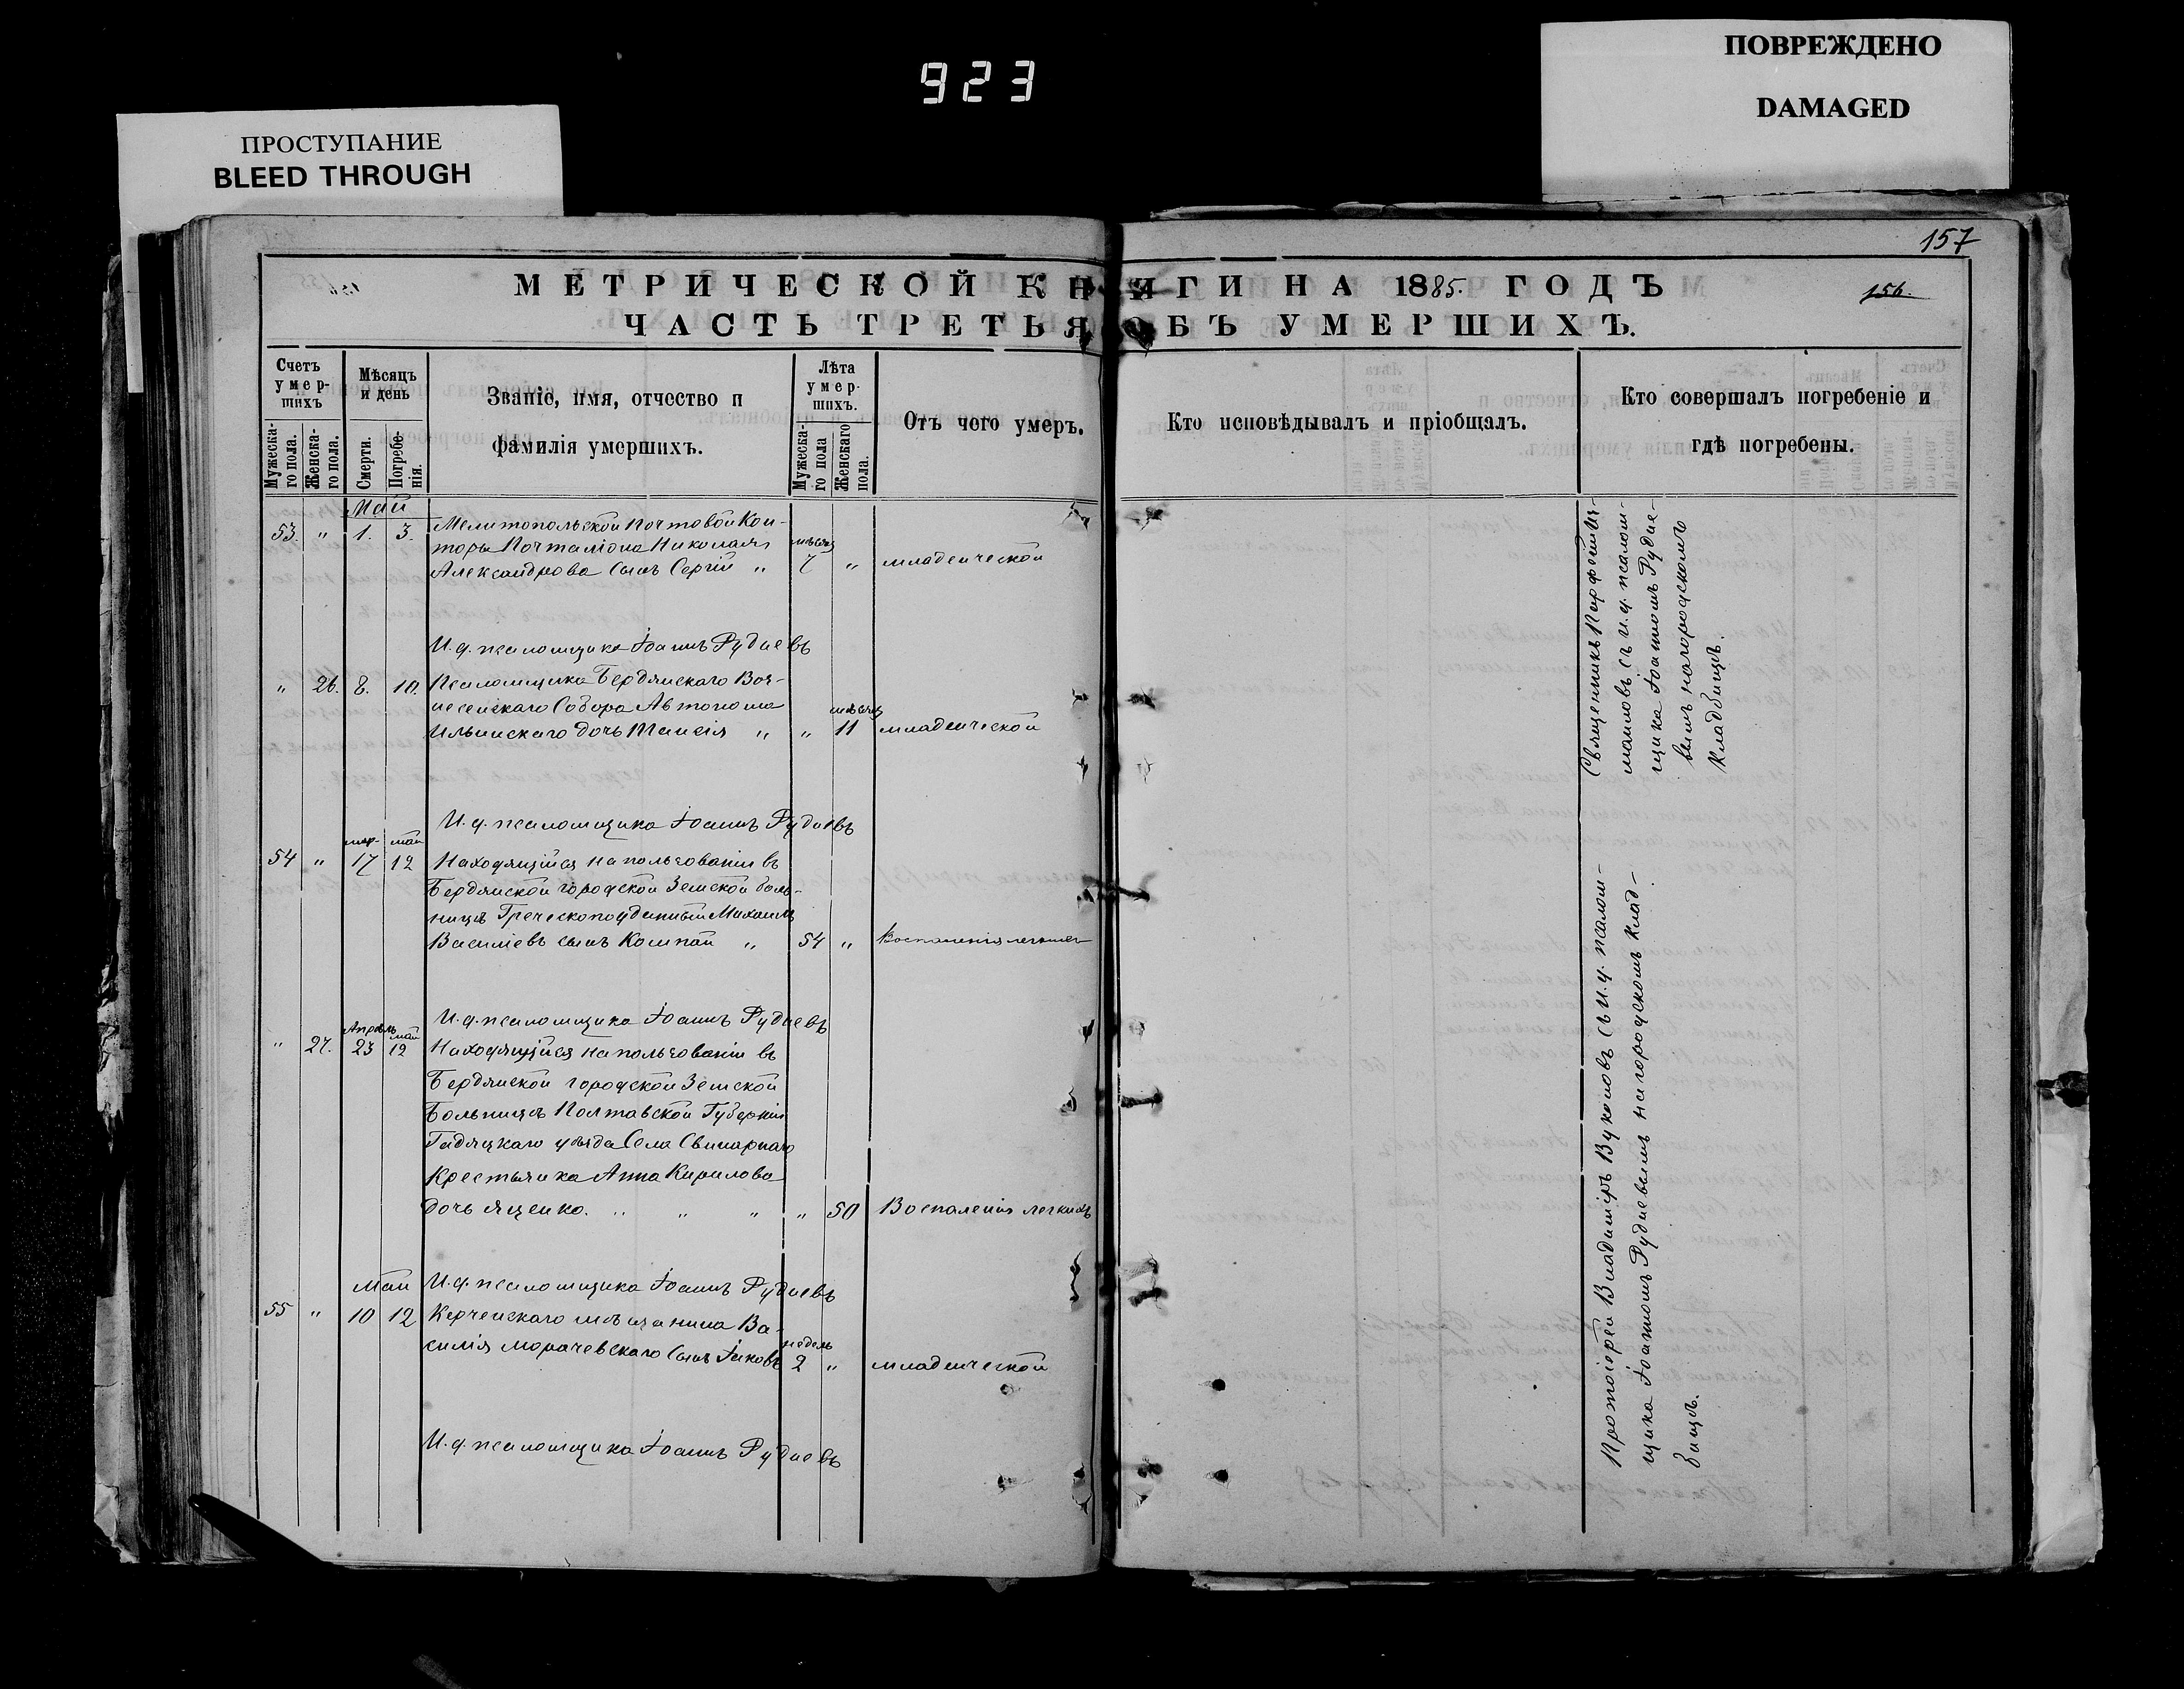 923
ПРОСТУПАНИЕ
BLEED THROUGH
ПОВРЕЖДЕНО
DAMAGED
157
МЕТРИЧЕСКОЙ КНИГИ НА 1885. ГОДЪ
156.
ЧАСТЬ ТРЕТЬЯ ОБЪ УМЕРШИХЪ.
Счетъ умер-шихъ
Мужеска-го пола.
Женска-го пола.
Мѣсяцъ и день
Смерти.
Погребе-нія.
Званіе, имя, отчество и
фамилія умершихъ.
Лѣта умер-шихъ.
Мужеска-го пола
Женскаго пола.
Отъ чего умеръ.
Кто исповѣдывалъ и пріобщалъ.
Кто совершалъ погребеніе и
гдѣ погребены.
Май
53. " 1. 3. Мелитопольской Почтовой Кон-
торы Почталіона Николая мѣсяц
Александрова сынъ Сергій " 7 " младенческой
И.д. псаломщика Іоаннъ Рудневъ
" 26. 8. 10. Псаломщика Бердянскаго Воз-
несенскаго Собора Автонома мѣсяц
Ильинскаго дочь Таисія " " 11 младенческой
И.д. псаломщика Іоаннъ Рудневъ
мар. май
54 " 17 12 Находящійся на пользованіи въ
Бердянской городской Земской боль-
ницѣ Греческоподданный Михаилъ
Василіевъ сынъ Компан " 54 " Воспаленія легкихъ
И.д. псаломщика Іоаннъ Рудневъ
Апрѣль май
" 27. 23 12 Находящійся на пользованіи въ
Бердянской городской Земской
Больницѣ Полтавской Губерніи
Гадяцкаго уѣзда Села Свинарнаго
Крестьянка Анна Кирилова
дочь Яценко. " " " " 50 Воспаленія легкихъ
Май И.д. псаломщика Іоаннъ Рудневъ
55 " 10 12 Керченскаго мѣщанина Ва-
силія Морачевскаго сынъ Іаковъ недѣль 2 " младенческой
И.д. псаломщика Іоаннъ Рудневъ
Священникъ Порфирій
мановъ съ И.д. псалом-
щика Іоанномъ Рудне-
вымъ на городскомъ
кладбищѣ.
Протоіерей Владиміръ Вуколовъ съ И.д. псалом-
щика Іоанномъ Рудневымъ на городскомъ клад-
бищѣ.